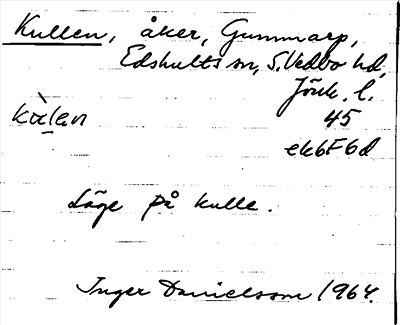 Kullen, åker, Gummarp,
Edshults sn, S. Vedbo hd,
Jönk. l.
45
ek6F6d
Läge på kulle.
Inger Danielsson 1964.